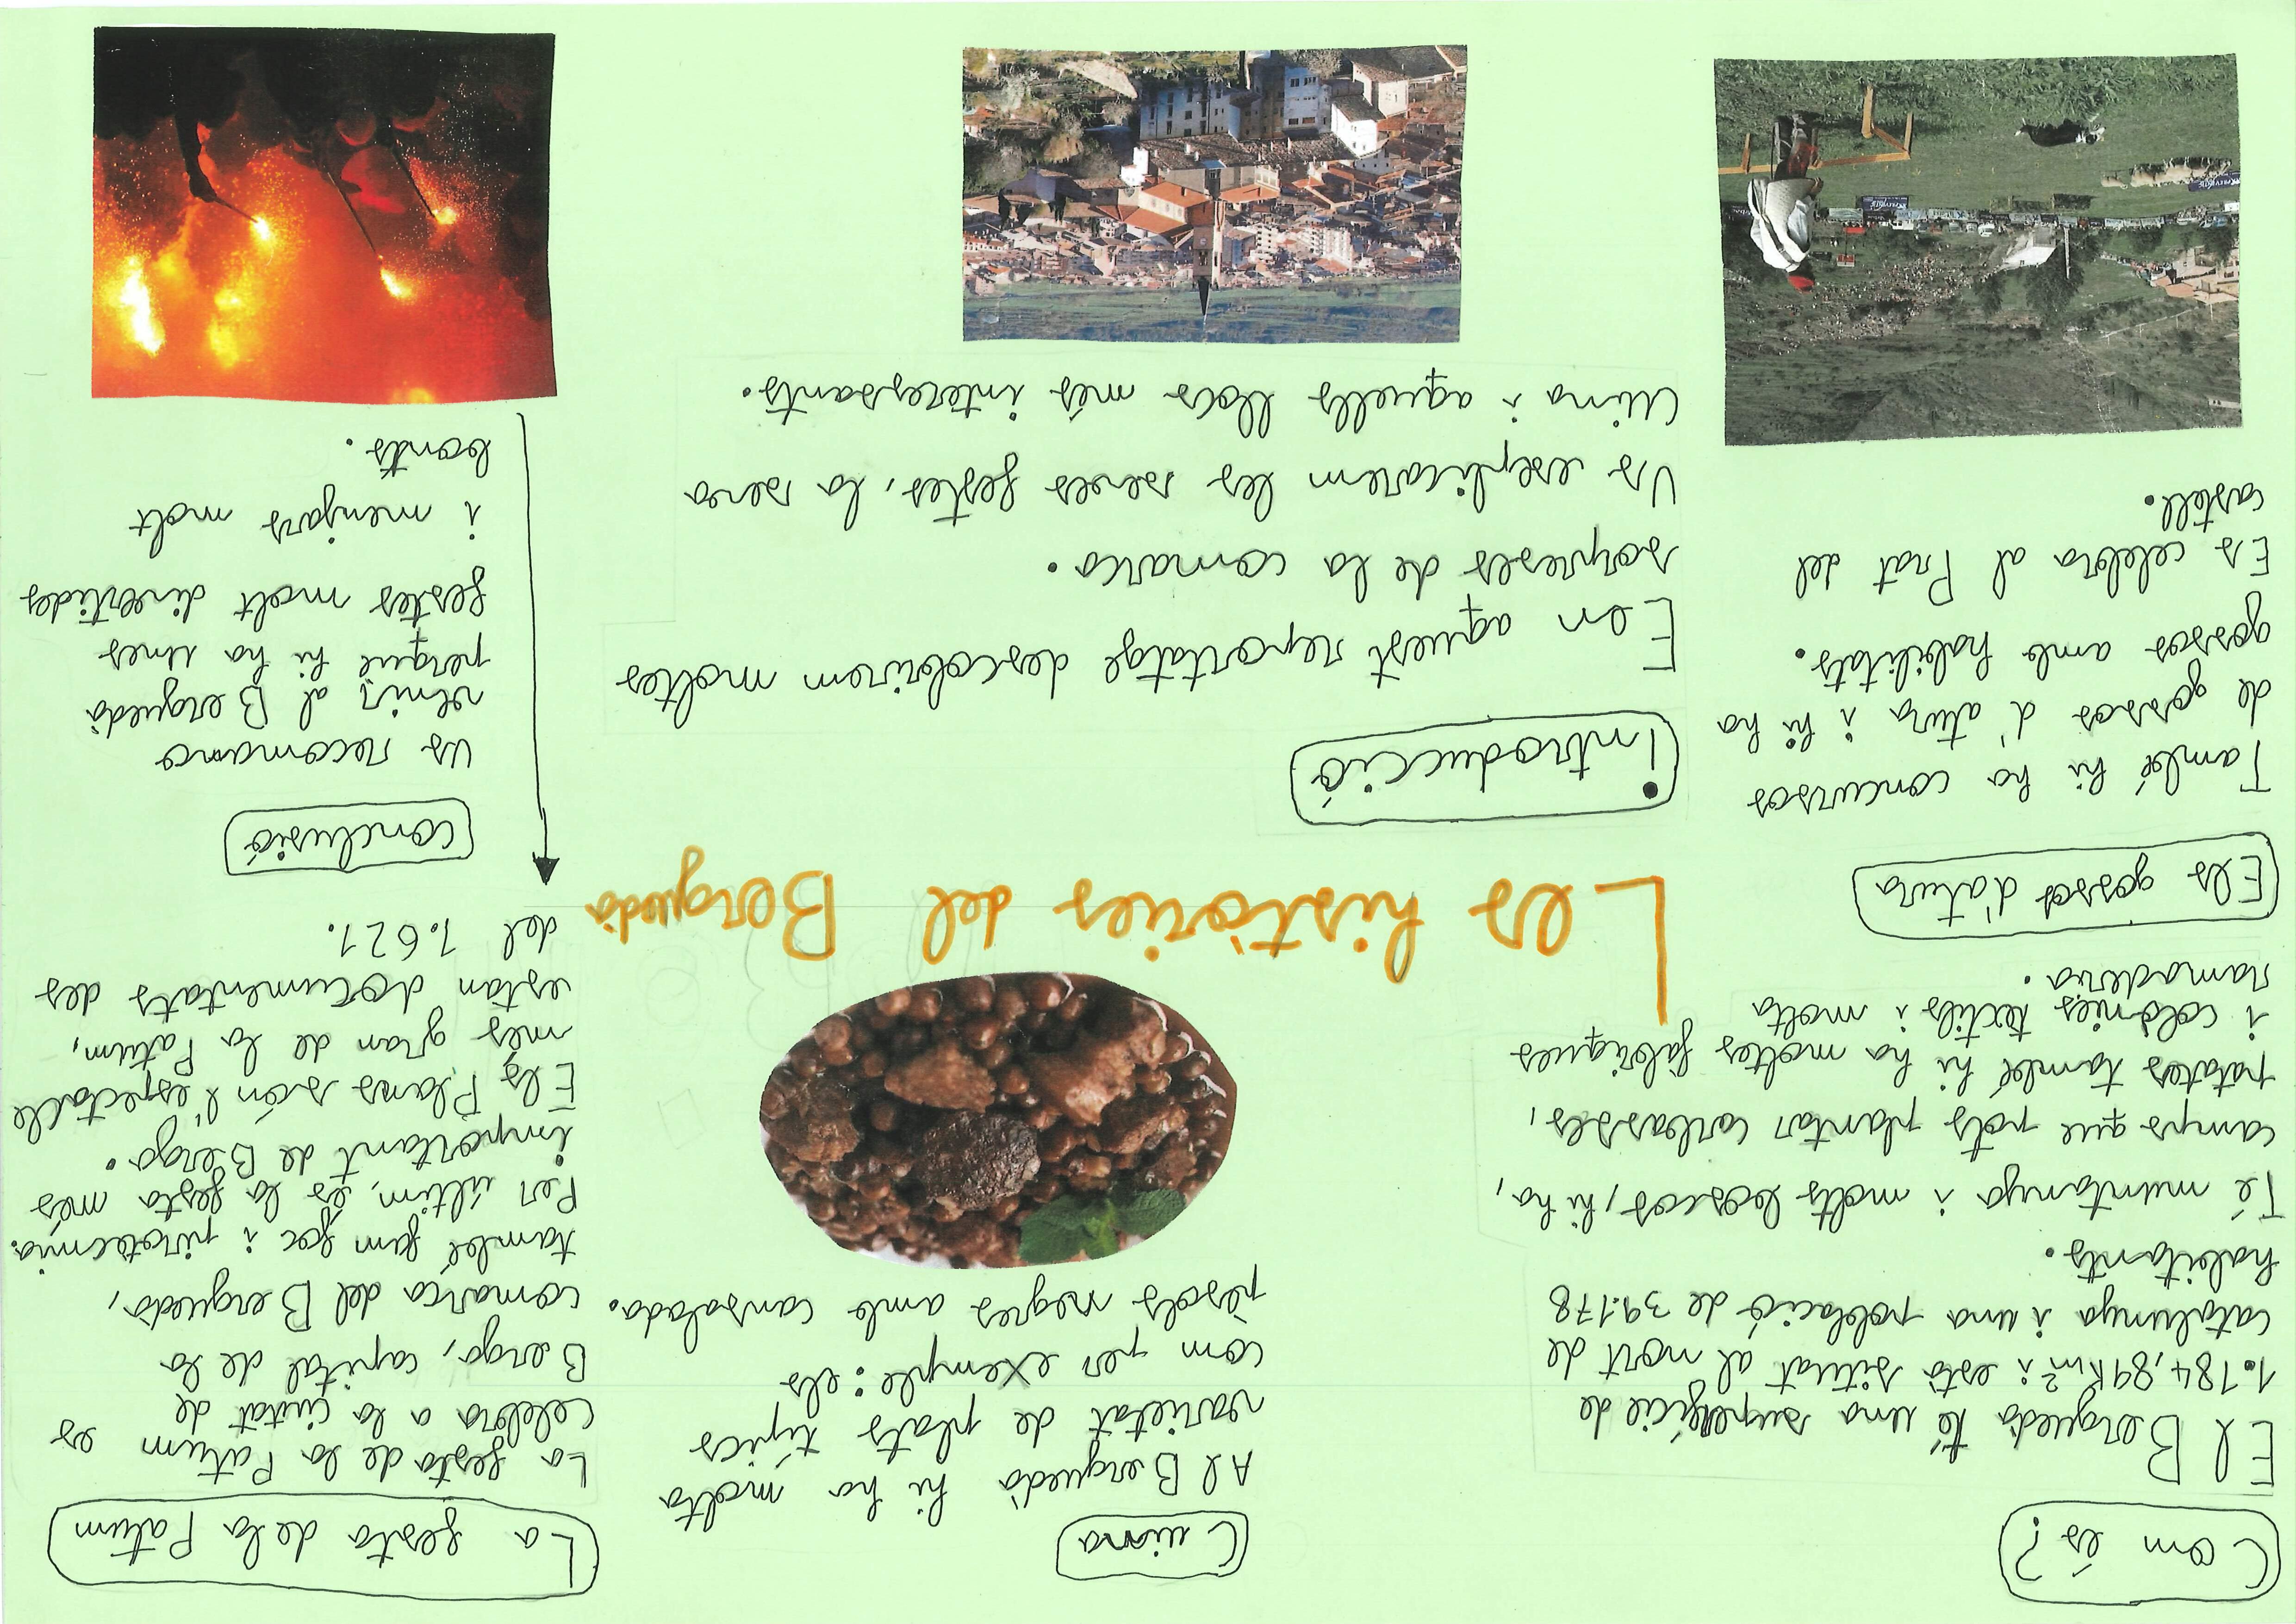 Com és?
El Berguedà té una superfície de
1.184,89 Km² i està situat al nort de
catalunya i una població de 39.178
habitants.
Té muntanya i molts boscos, hi ha,
camps que pots plantar carbasses,
patates també hi ha moltes fàbriques
i colònies textils i molta
ramaderia.
Els gossos d'atura
També hi ha concursos
de gossos d'atura i hi ha
gossos amb habilitats.
Es celebra al Prat del
castell.
Cuina
Al Berguedà hi ha molta
varietat de plats típics
com per exemple: els
pèsols negres amb cansalada.
Les històries del Berguedà
• Introducció
E en aquest reportatge descobrirem moltes
sorpreses de la comarca.
Us explicarem les seves festes, la seva
cuina i aquells llocs més interessants.
La festa de la Patum
La festa de la Patum es
celebra a la ciutat de
Berga, capital de la
comarca del Berguedà,
també fam foc i pirotècnia.
Per últim, és la festa més
important de Berga.
Els Plans són l'espectacle
més gran de la Patum,
estan documentats des
del 1.621.
conclusió
Us recomano
venir al Berguedà
perque hi ha unes
festes molt divertides
i menjars molt
bonts.